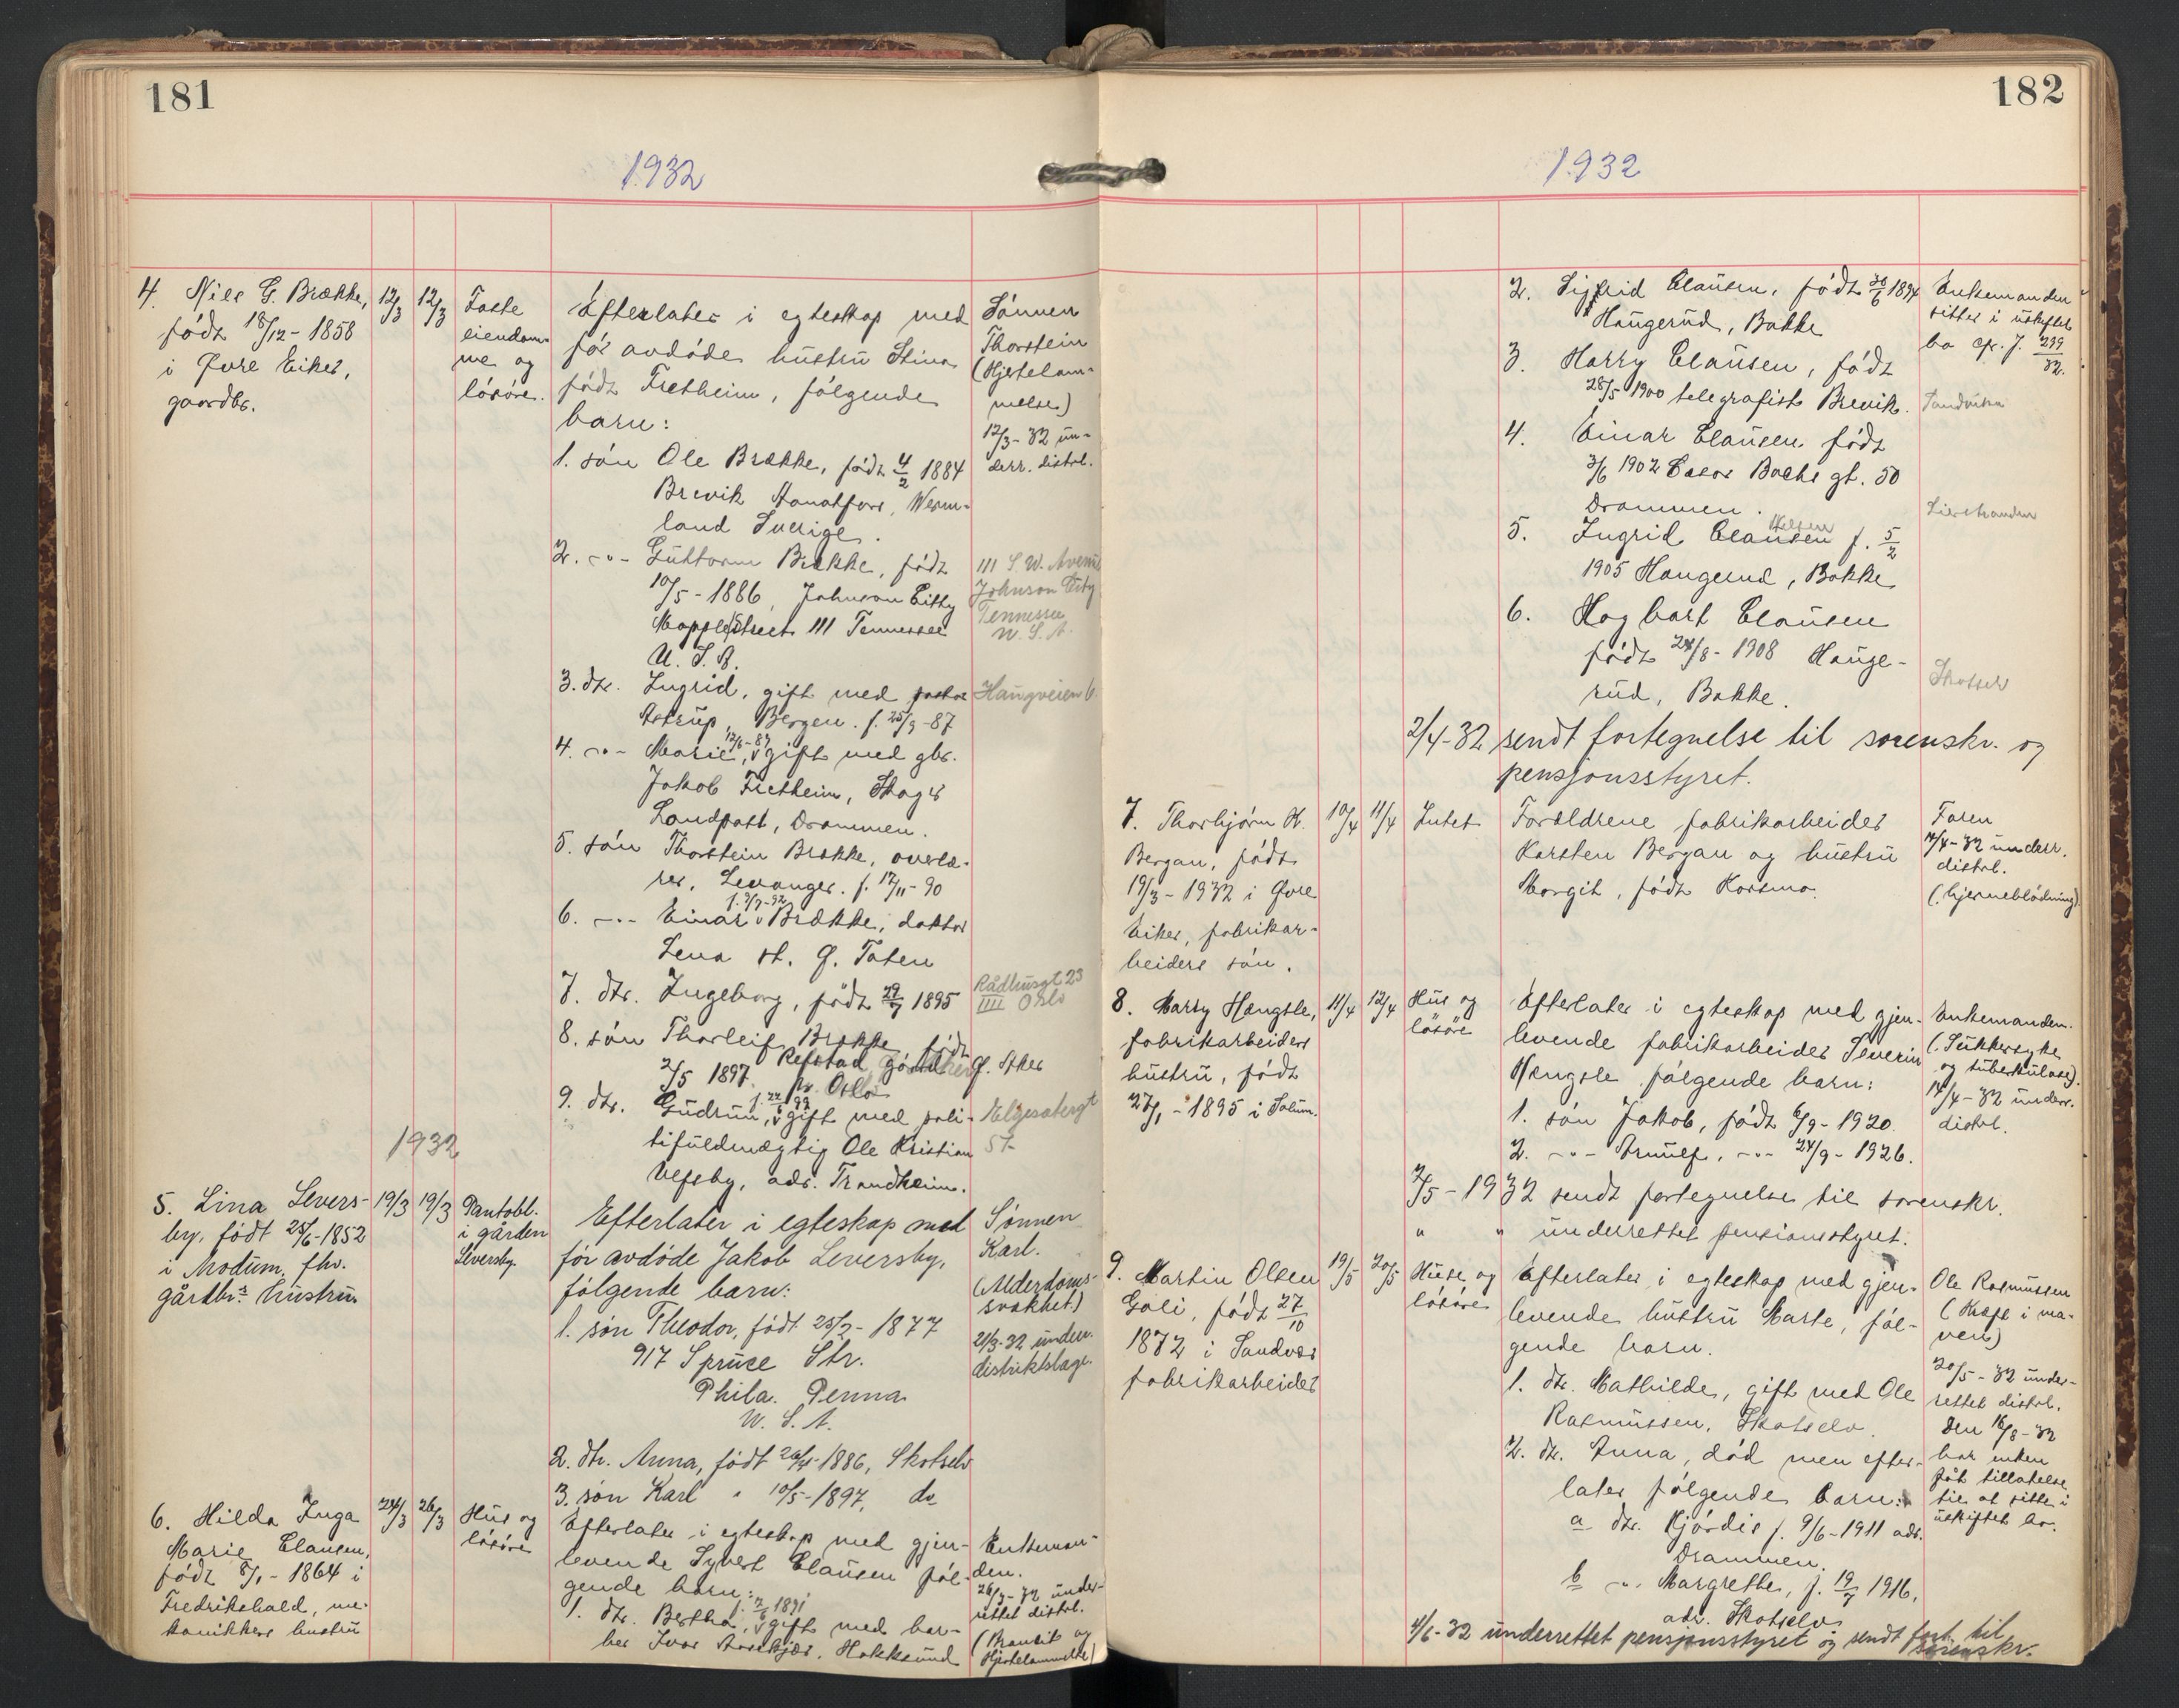 181
1932
4. Niels G. Brække,
født 18/12 - 1858
i Øvre Eiker,
gaardbr.
12/3
12/3
Faste
eiendom-
me og
løsøre.
Efterlater i egteskap med
før avdøde hustru Stina
født Fretheim, følgende
barn:
1. søn Ole Brække, født 4/2 1884
Brevik Verm-
land Sverige.
2. -"- Guttorm Brekke, født
10/5 - 1886, Johnson Citty
Mapplestreet 111 Tennessee
U. S. A.
3. dtr. Ingrid, gift med pastor
Astrup, Bergen. f. 25/9-87
4. -"- Marie, 12/6-89 gift med gbr.
Jakob Fretheim, Skoger
Landpost, Drammen.
5. søn Thorstein Brække, overlæ-
rer, Levanger. f. 17/11-90
6. -"- Einar f. 3/7-92 Brække, doktor
Lena st. Ø. Toten
7. dtr. Ingeborg, født 29/7 1895
8. søn Thorleif Brække, født
2/5 1897. Refstad gård Ø. Aker
pr. Oslo
9. dtr. Gudrun, f. 22/6 99 gift med poli-
tifuldmægtig Ole Kristian
Ulfsby, adr. Trondheim.
Sønnen
Thorstein
(Hjertelam-
melse)
12/3-32 un-
derr. distrl.
111 S. W. Avenue
Johnson City
Tennessee
U. S. A.
Haugveien 6.
Rådhusgt 23
III Oslo
Elgesætergt
57
1932
5. Lina Levers-
by, født 25/6-1852
i Modum, fhv.
gårdbr.s hustru
19/3
19/3
Pantobl.
i gården
Leversby.
Efterlater i egteskap med
før avdøde Jakob Leversby,
følgende barn:
1. søn Theodor, født 25/2 - 1877
917 Spruce Str.
Phila. Penna
U. S. A.
2. dtr. Anna, født 26/4-1886, Skotselv
3. søn Karl " 10/5-1897, do
Sønnen
Karl.
(Alderdoms-
svakhet.)
21/3-32 underr.
distriktslæge.
6. Hilda Inga
Marie Clausen,
født 8/1 - 1864 i
Fredrikshald, me-
kanikkers hustru
24/3
26/3
Hus og
løsøre
Efterlater i egteskap med gjen-
levende Syvert Clausen føl-
gende barn:
1. dtr. Bertha, f. 7/6 1891 gift med bar-
ber Ivar Hokksund
Enkeman-
den.
26/3-32 under-
rettet distrl.
(Bronkit og
Hjertelammelse)
182
1932
2. Sigfrid Clausen, født 30/6 1894
Haugerud, Bakke
3. Harry Clausen, født
28/5 1900 telegrafist Brevik.
4. Einar Clausen født
3/6 1902 Bachs gt. 50
Drammen.
5. Ingrid Clausen f. 5/2
1905 Haugerud, Bakke
6. Hagbart Clausen
født 24/8 - 1908 Hauge-
rud, Bakke.
Enkemanden
sitter i uskiftet
bo cfr. J. 299/32.
Sandvika
Lierstranden
Skotselv
2/4-32 sendt fortegnelse til sorenskr. og
pensjonsstyret.
7. Thorbjørn K.
Bergan, født
19/3 - 1932 i Øvre
Eiker, fabrikar-
beiders søn.
10/4
11/4
Intet
Foreldrene fabrikarbeider
Karsten Bergan og hustru
Margit, født Korsmo.
Faren
12/4-32 underr.
distrl.
(hjerneblødning)
8. Marry Hængsle,
fabrikarbeiders
hustru, født
27/1 - 1895 i Solum.
11/4
12/4
Hus og
løsøre
Efterlater i egteskap med gjen-
levende fabrikarbeider Severin
Hængsle følgende barn:
1. søn Jakob, født 6/9 - 1920.
2. -"- Arnulf, -"- 24/9 - 1926.
Enkemanden.
(Sukkersyke
og tuberkulose).
14/4-32 underr.
distrl.
2/5 - 1932 sendt fortegnelse til sorenskr.
" " underrettet pensionsstyret.
9. Martin Olsen
Goli, født 27/10
1872 i Sandvær
fabrikarbeider
19/5
20/5
Huse og
løsøre
Efterlater i egteskap med gjen-
levende hustru Marte, føl-
gende barn.
1. dtr. Mathilde, gift med Ole
Rasmussen, Skotselv.
2. dtr. Anna, død men efter-
later følgende barn:
a dtr. Hjørdis f. 9/6-1911 adr.
Drammen.
b -"- Margrethe, f. 19/7 1916,
adr. Skotselv
Ole Rasmussen
(Kræft i ma-
ven)
20/5-32 under-
rettet distrl.
Den 16/8-32
har enken
fåt tillatelse
til at sitte i
uskiftet bo.
4/6-32 underrettet pensjonsstyret og sendt fort. til
sorenskr.